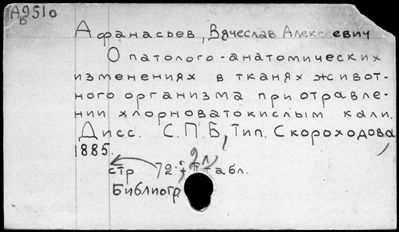 А9510
в
Афанасьев, Вячеслав Алексеевич
О патолого-анатомических
изменениях в тканях живот-
ного организма при отравле-
нии хлорноватокислым кали.
Дисс. С.П.Б, Тип. Скороходова,
1885.
2л
стр 72; табл.
Библиогр